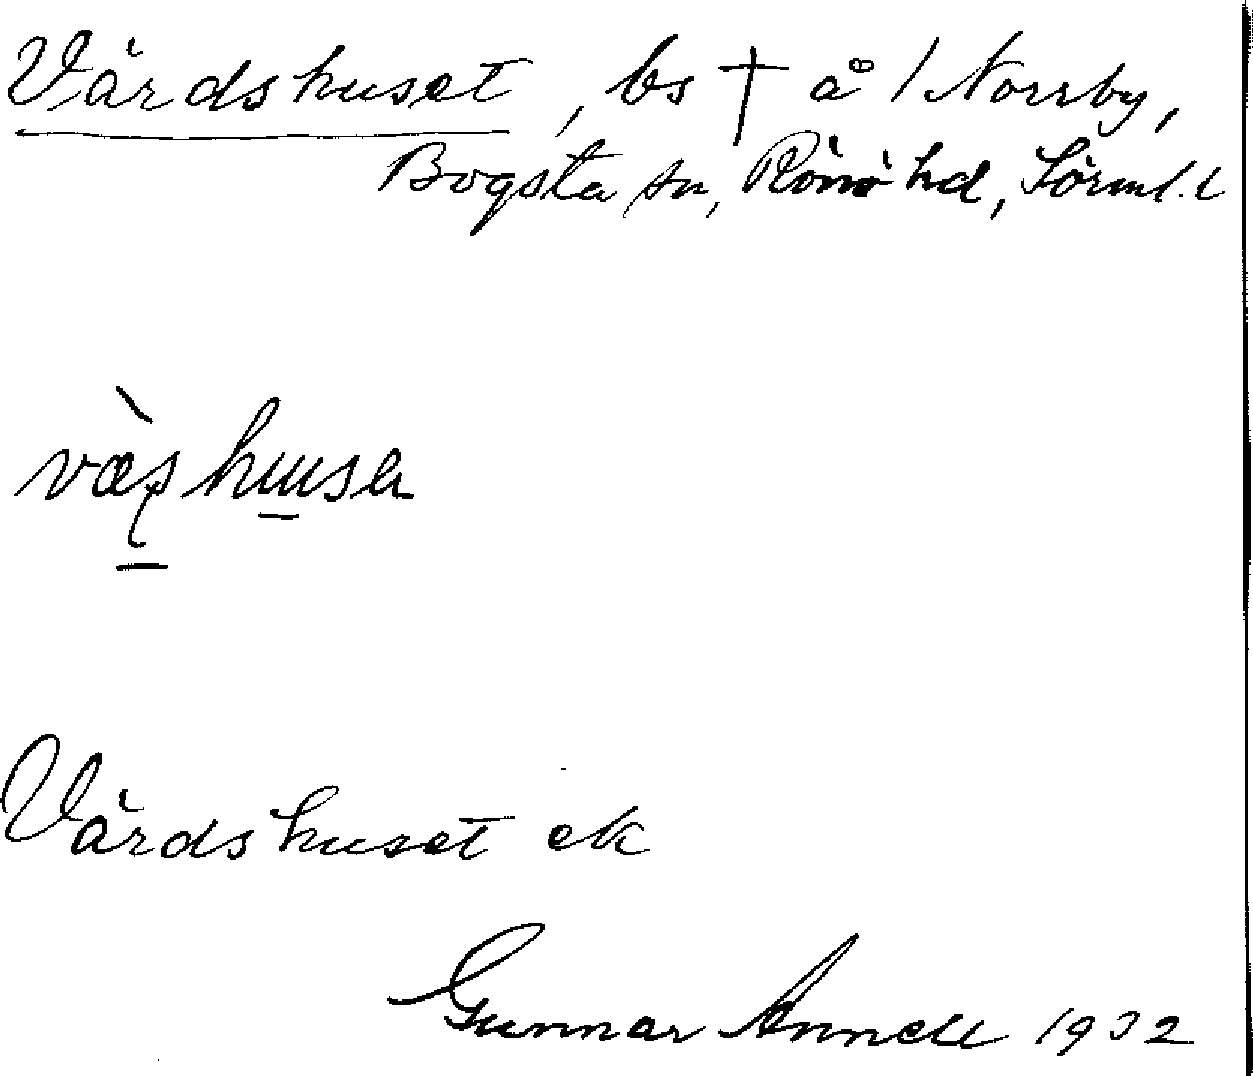 Värdshuset, bs † å 1 Norrby,
Bogsta sn, Rönö hd, Sörml. l
Värdshuset ek
Gunnar Annell 1932